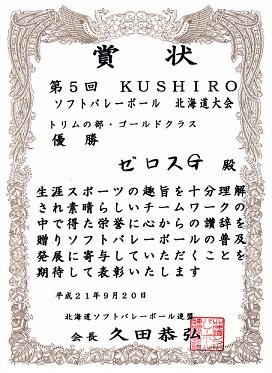 賞状
第5回 KUSHIRO
ソフトバレーボール 北海道大会
トリムの部・ゴールドクラス
優勝
ゼロスG 殿
生涯スポーツの趣旨を十分理解
され素晴らしいチームワークの
中で得た栄誉に心からの讃辞を
贈りソフトバレーボールの普及
発展に寄与していただくことを
期待して表彰いたします
平成21年9月20日
北海道ソフトバレーボール連盟
会長 久田恭弘